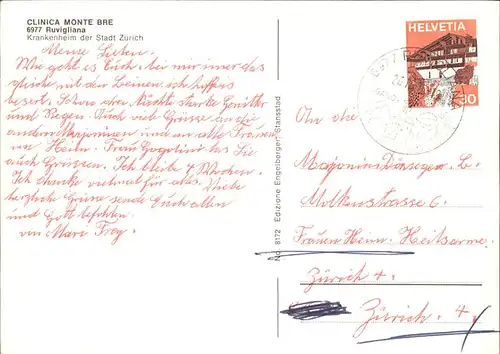 CLINICA MONTE BRE
6977 Ruvigliana
Krankenheim der Stadt Zürich
Meine Lieben.
Wie geht es Euch, bei mir immer das
gleiche mit den Beinen, ich hoffe es
bessert. Schon drei Nächte starke Gewitter
und Regen. Auch viel Grüsse an die
andern Majorinnen und an alle Frauen
im Heim. Frau Gogolini las Sie
auch Grüssen. Ich bleibe 4 Wochen.
Ich danke vielmal für alles. Viele
herzliche Grüsse sende Euch allen
und Gott befohlen
von Marie Frey.
No. 8172 Edizione Engelberger, Stansstad
HELVETIA
30
6977
An die
Majorin B.
Molkenstrasse 6.
Frauen Heim, Heilsarme
Zürich 4.
Zürich. 4.